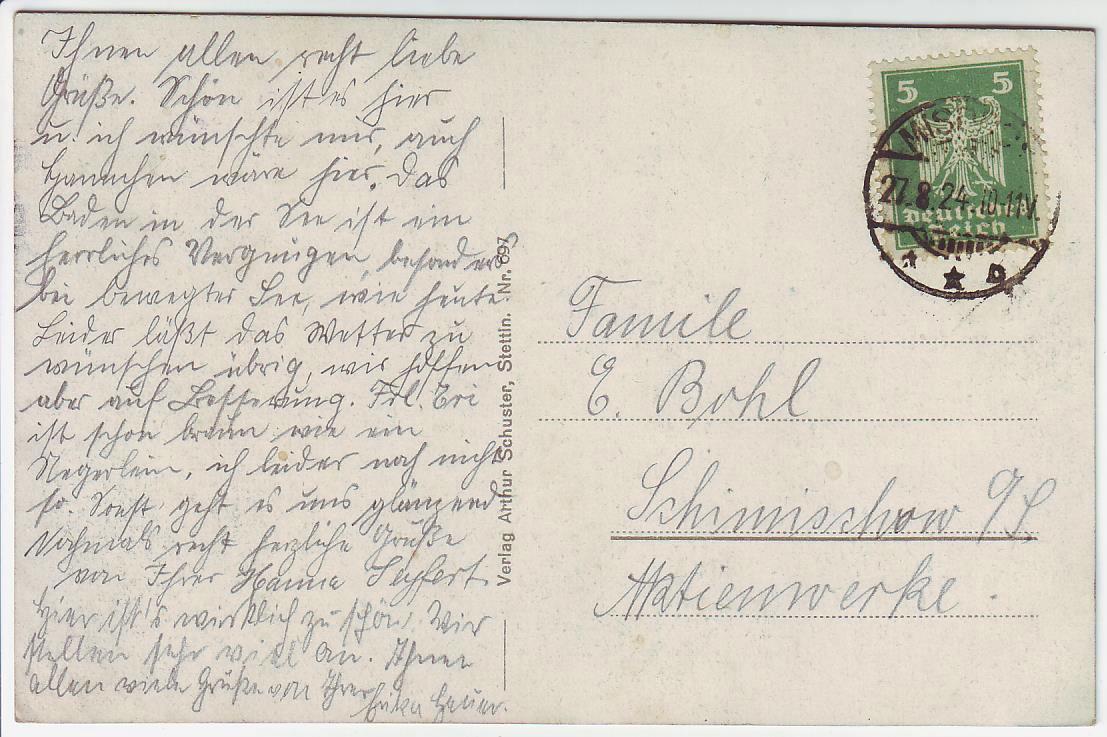 Ihnen allen recht liebe
Grüße. Schön ist es hier
u. ich wünschte nur, auch
Hannchen wäre hier. Das
Baden in der See ist ein
herrliches Vergnügen, besonders
bei bewegter See, wie heute.
Leider läßt das Wetter zu
wünschen übrig, wir hoffen
aber auf Besserung. Frl.
ist schon braun wie ein
Negerlein, ich leider noch nicht
so. Sonst geht es uns glänzend
Nochmals recht herzliche Grüße
von Ihrer Hanna Seyfert.
Hier ist's wirklich zu schön. Wir
stellen sehr viel an. Ihnen
allen viele Grüße von Ihrer
Verlag Arthur Schuster, Stettin. Nr. 697
5 5
Deutsches
Reich
27.8.24. 10-11V.
Famile
E. Bohl
Schimischow O/S
Aktienwerke.